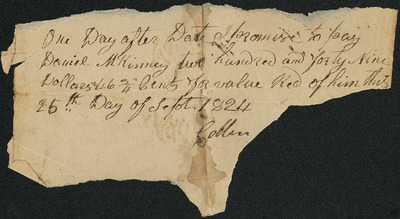 One Day after Date I promise to pay
Daniel McKinney two hundred and forty Nine
Dollars 46 3/4 Cents for value Recd of him this
25th Day of Sept. 1824
Collin